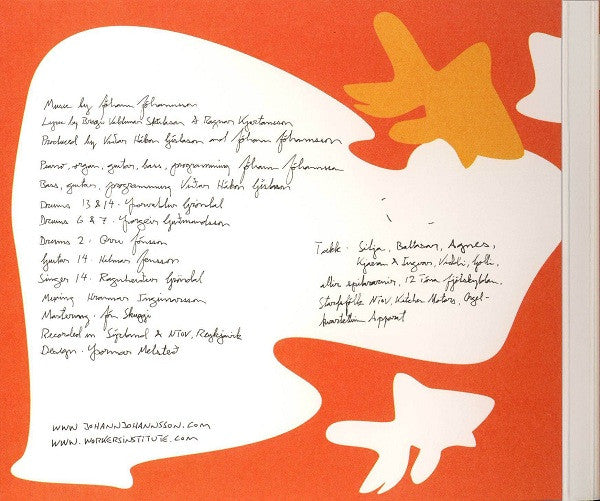 Music by Jóhann Jóhannsson
Lyrics by Bragi Valdimar Skúlason & Ragnar Kjartansson
Produced by Viðar Hákon Gíslason and Jóhann Jóhannsson
Piano, organ, guitar, bass, programming Jóhann Jóhannsson
Bass, guitar, programming Viðar Hákon Gíslason
Drums 13 & 14 - Þorvaldur Gröndal
Drums 6 & 7 - Þorgeir Guðmundsson
Drums 2 - Orri Jónsson
Guitar 14 - Hilmar Jensson
Singer 14 - Ragnheiður Gröndal
Mixing Hrannar Ingimarsson
Mastering - Jón Skuggi
Recorded in Sýrland & NTOV, Reykjavík
Design - Þormar Melsteð
WWW JOHANNJOHANNSSON.COM
WWW.WORKERSINSTITUTE.COM
Takk - Silja, Baltasar, Agnes,
Kjartan & Ingvar,
allir 12 Tóna fjölskyldan,
Starfsfólk NTOV, Kitchen Motors, Orgel-
kvartettinn Apparat